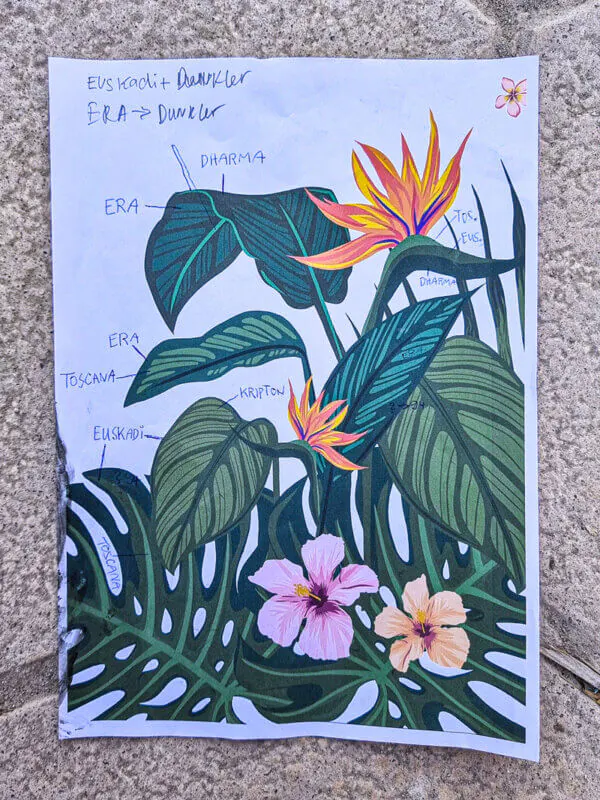 Euskadi + Dunkler
ERA → Dunkler
DHARMA
ERA
TOS.
EUS.
DHARMA
ERA
TOSCANA
KRIPTON
EUSKADI
TOSCANA